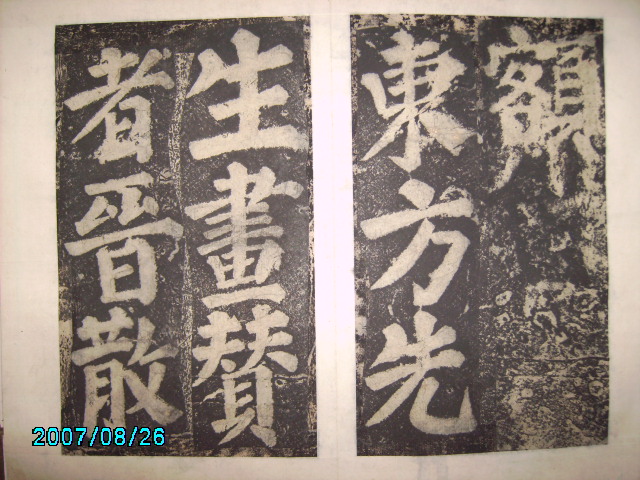 額
東方先
生畫賛
者晉散
2007/08/26